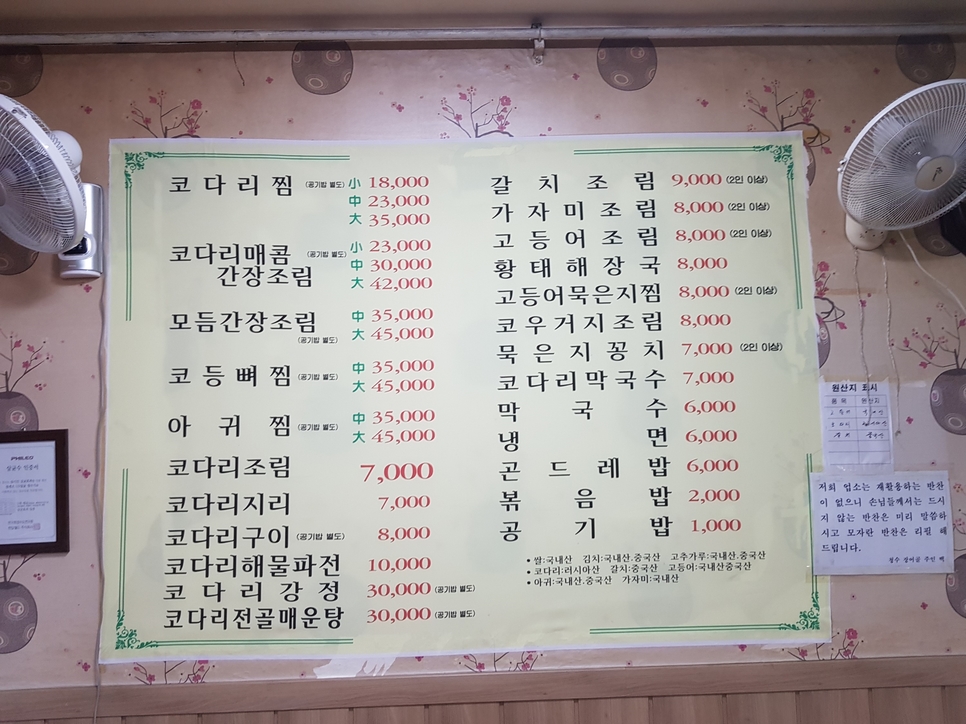 코다리찜 (공기밥 별도) 小 18,000
中 23,000
大 35,000
코다리매콤 (공기밥 별도) 小 23,000
간장조림 中 30,000
大 42,000
모듬간장조림 中 35,000
(공기밥 별도) 大 45,000
코등뼈찜 (공기밥 별도) 中 35,000
大 45,000
아귀찜 (공기밥 별도) 中 35,000
大 45,000
코다리조림 7,000
코다리지리 7,000
코다리구이 (공기밥 별도) 8,000
코다리해물파전 10,000
코다리강정 30,000 (공기밥 별도)
코다리전골매운탕 30,000 (공기밥 별도)
갈치조림 9,000 (2인 이상)
가자미조림 8,000 (2인 이상)
고등어조림 8,000 (2인 이상)
황태해장국 8,000
고등어묵은지찜 8,000 (2인 이상)
코우거지조림 8,000
묵은지꽁치 7,000 (2인 이상)
코다리막국수 7,000
막국수 6,000
냉면 6,000
곤드레밥 6,000
볶음밥 2,000
공기밥 1,000
• 쌀:국내산 김치:국내산.중국산 고추가루:국내산.중국산
• 코다리:러시아산 갈치:중국산 고등어:국내산중국산
• 아귀:국내산.중국산 가자미:국내산
원산지 표시
품목 원산지
저희 업소는 재활용하는 반찬
이 없으니 손님들께서는 드시
지 않는 반찬은 미리 말씀하
시고 모자란 반찬은 리필 해
드립니다.
PHILCO